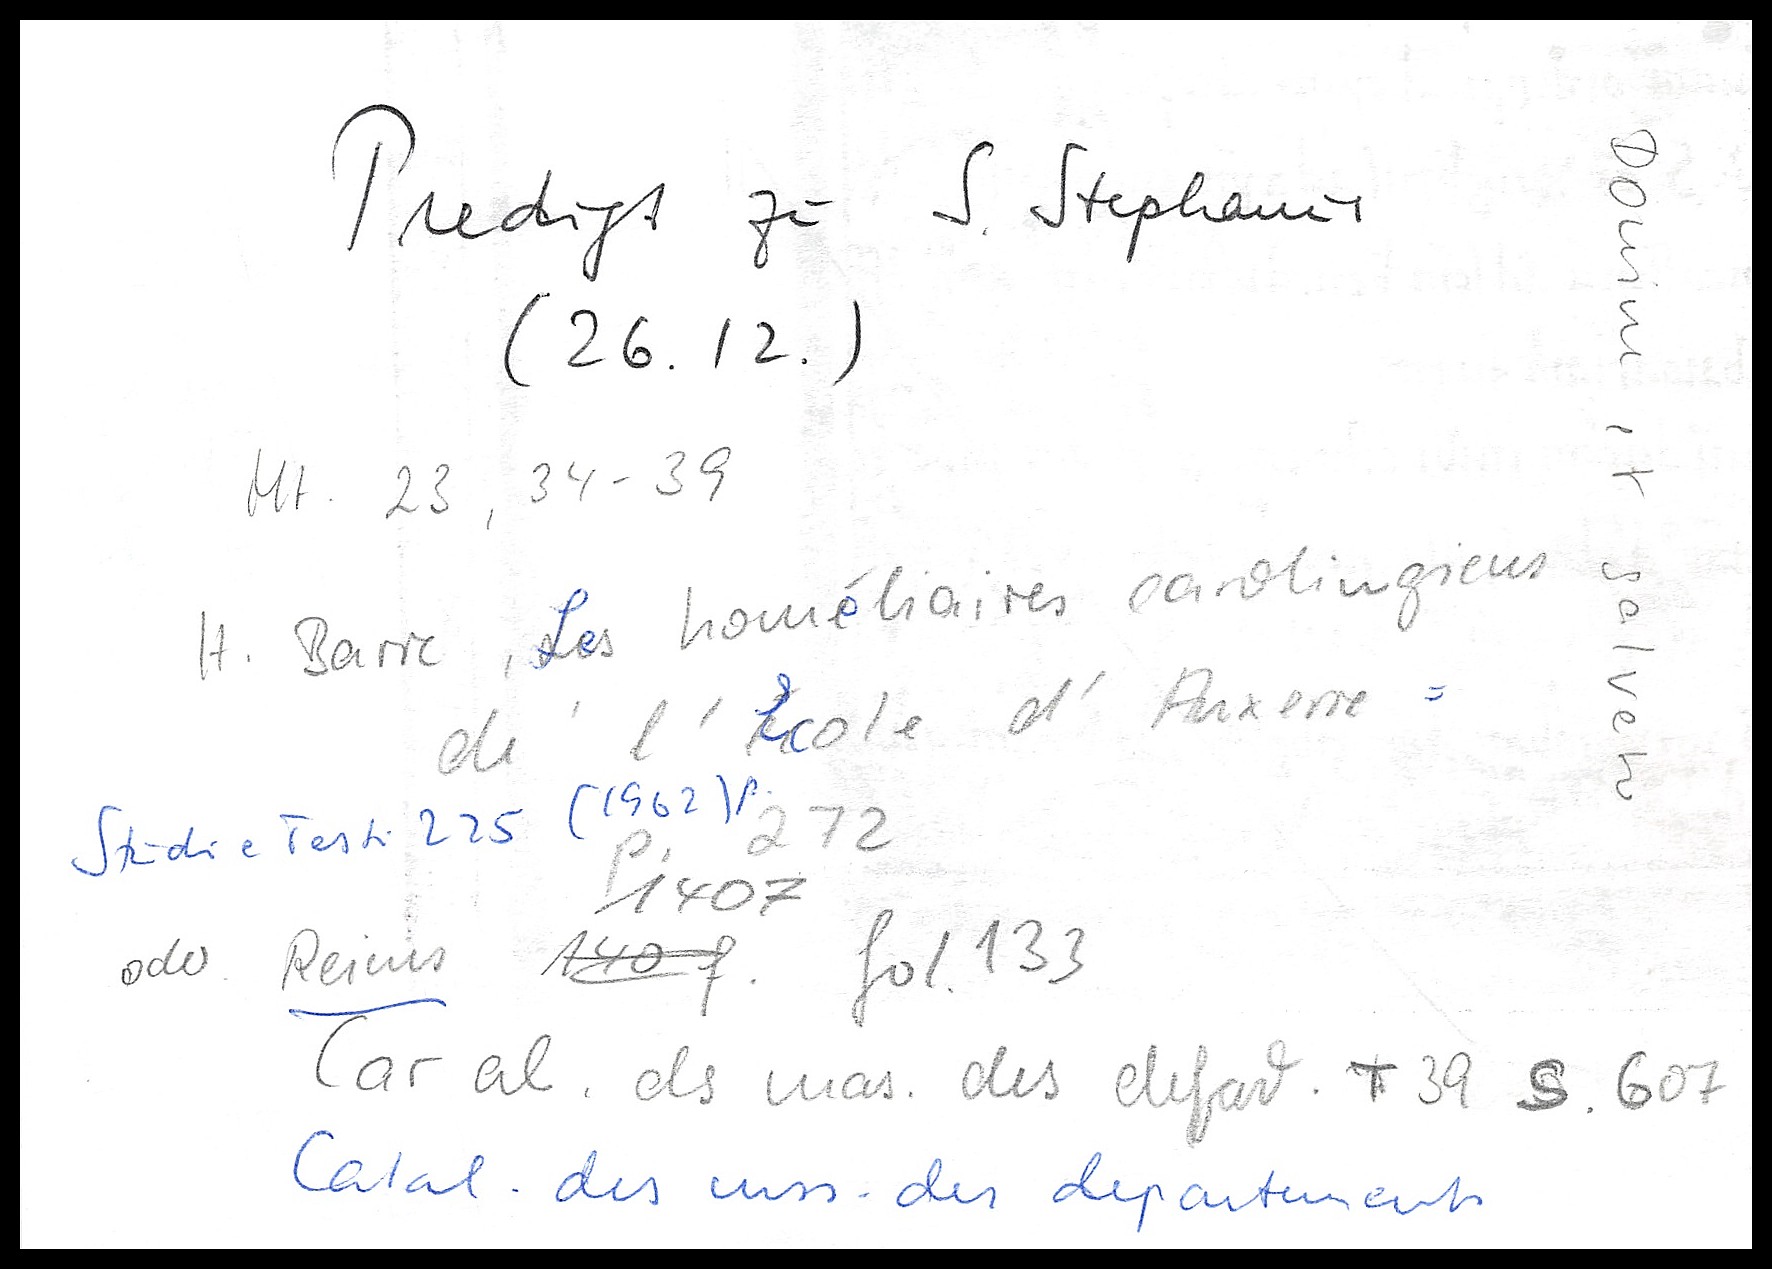 Predigt zu S. Stephanus
(26.12.)
Mt. 23, 34-39
H. Barre, Les homéliaires carolingiens
de l'École d'Auxerre =
Studi e Testi 225 (1962) p.
p. 272
1407
oder Reims 1407. fol. 133
Catal. ds mas. des depart. T 39 S. 607
Catal. des mss. des departements
Domine, it salvet